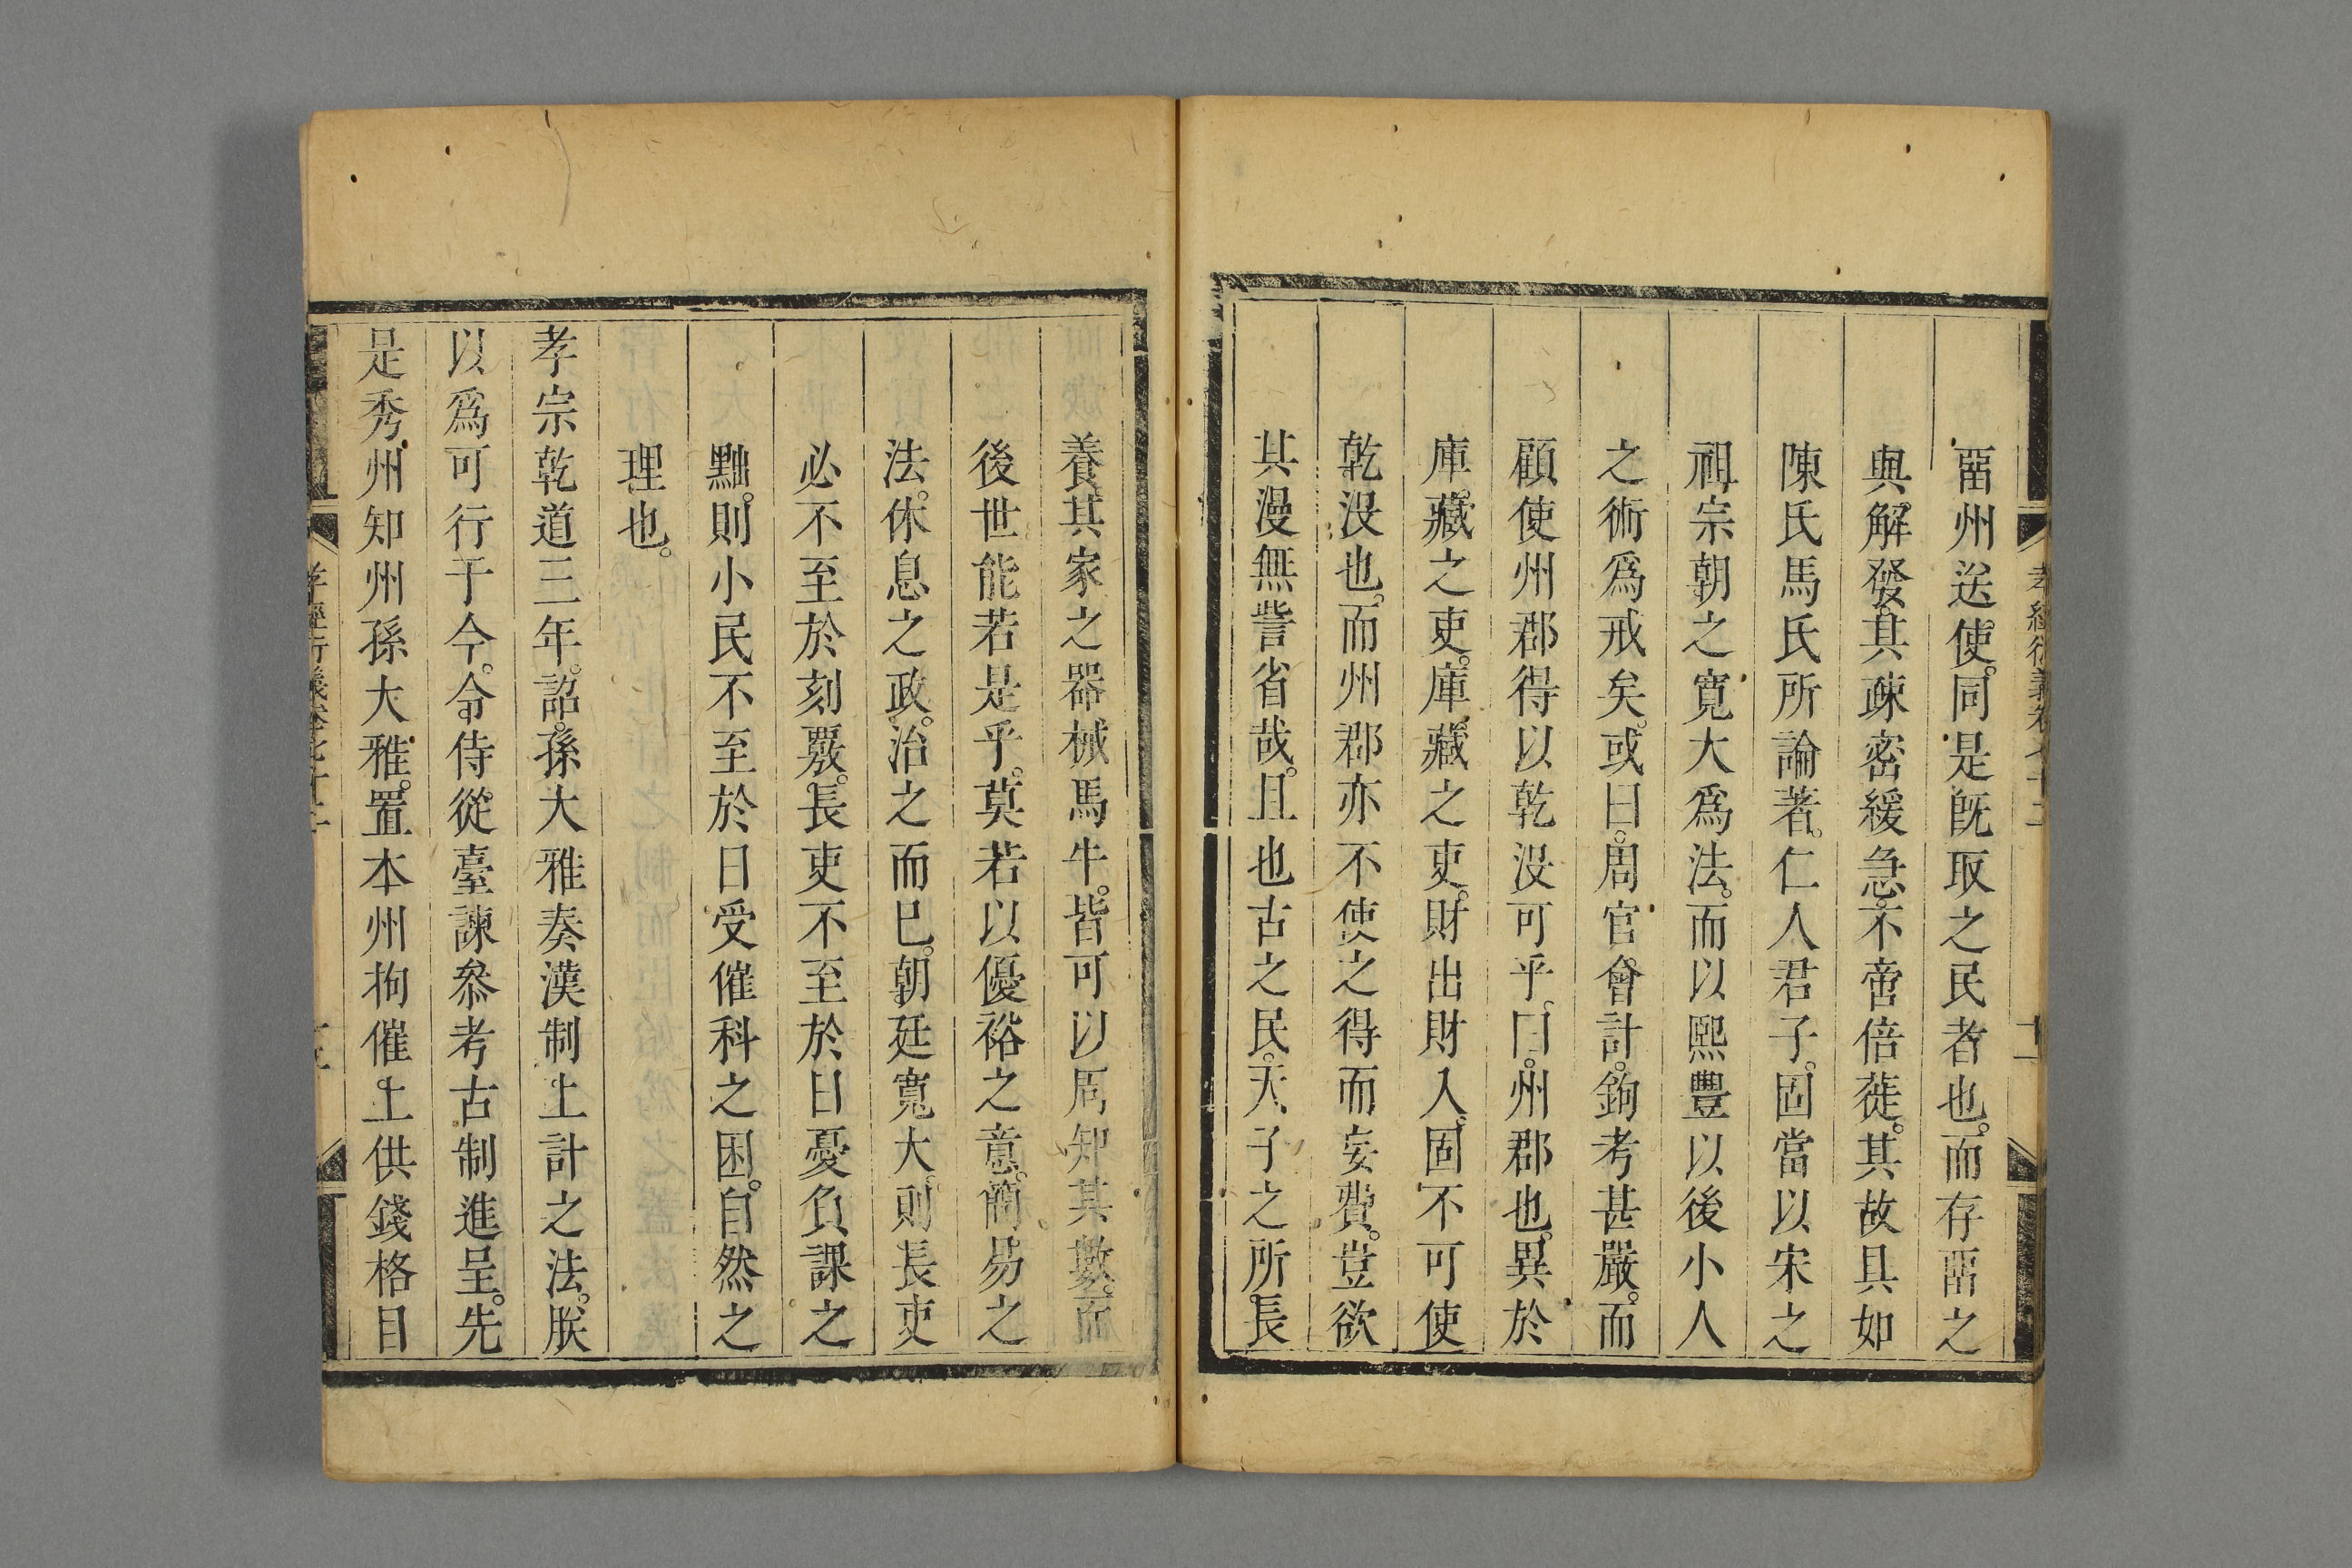 孝經衍義卷七十二
十一
畱州送使。同是旣取之民者也。而存畱之
與解發。其疎密緩急。不啻倍蓰。其故具如
陳氏馬氏所論著。仁人君子。固當以宋之
祖宗朝之寬大爲法。而以熙豐以後小人
之術爲戒矣。或曰。周官。會計。鉤考甚嚴。而
顧使州郡得以乾没可乎。曰。州郡也。異於
庫藏之吏。庫藏之吏。財出財入。固不可使
乾没也。而州郡亦不使之得而妄費。豈欲
其漫無訾省哉。且也古之民。天子之所長
養。其家之器械馬牛。皆可以周知其數。而
後世能若是乎。莫若以優裕之意。簡易之
法。休息之政。治之而巳。朝廷寬大。則長吏
必不至於刻覈。長吏不至於日憂負課之
黜。則小民不至於日受催科之困。自然之
理也。
孝宗乾道三年。詔。孫大雅奏漢制上計之法。朕
以爲可行于今。令侍從臺諫叅考古制進呈。先
是秀州知州孫大雅。置本州拘催上供錢格目